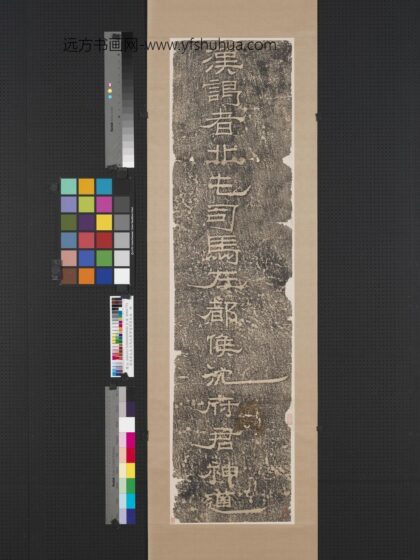 远方书画网-www.yfshuhua.com
漢謁者北屯司馬左都侯沈府君神道